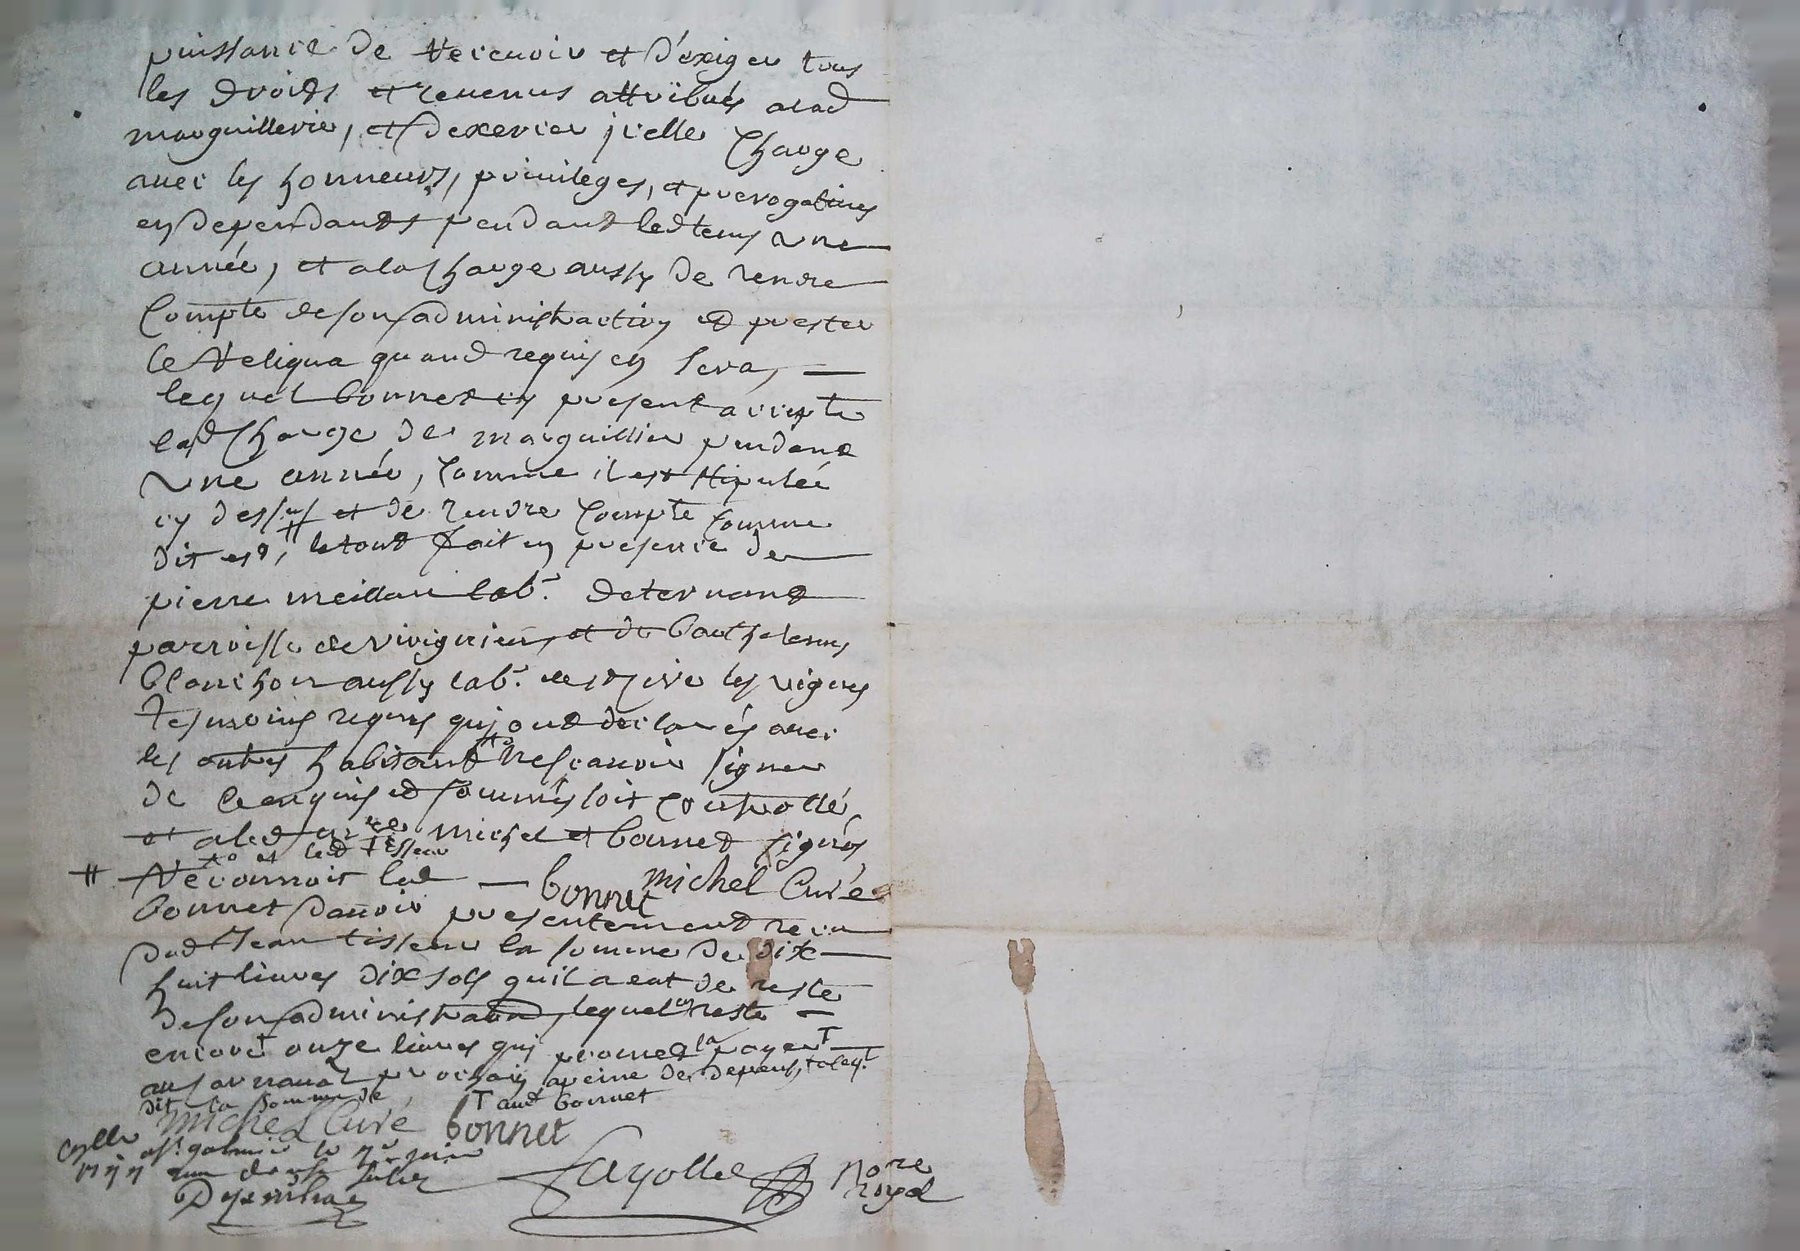 puissance de recevoir et d'exiger tous
les droits et revenus attribués alad
marguillerie, et dexercer jcelle charge
avec les honneurs, privileges, et prerogatives
en dependants pendant led tems une
année, et ala charge aussy de rendre
compte de son administration et prester
le reliqua quand requis en sera,
lequel bonnet cy present accepte
lad charge de marguillier pendant
une année, comme il est stipulée
cy dessus et de rendre compte comme
dit est, // le tout fait en presence de
pierre meillan lab.r de ternant
parroisse de virignieu et de barthelemy
blanchon aussy lab.r de st
tesmoins requis qui ont declarés avec
les autres habitants ne scavoir signer
de ce enquis et sommés soit controllé
et led sr michel et bonnet signés
et led tisseur
// Reconnoit led bonnet michel Curé
bonnet davoir presentement receu
dud Jean tisseur la somme de dix
huit livres dix sols quil a eut de reste
de son administration, lequel en reste
encore onze livres qui promet la payer T
au carnaval prochain apeine de depens,
dit la somme de T aud bonnet
michel Curé bonnet
le juin
Fayolle No.re
royal